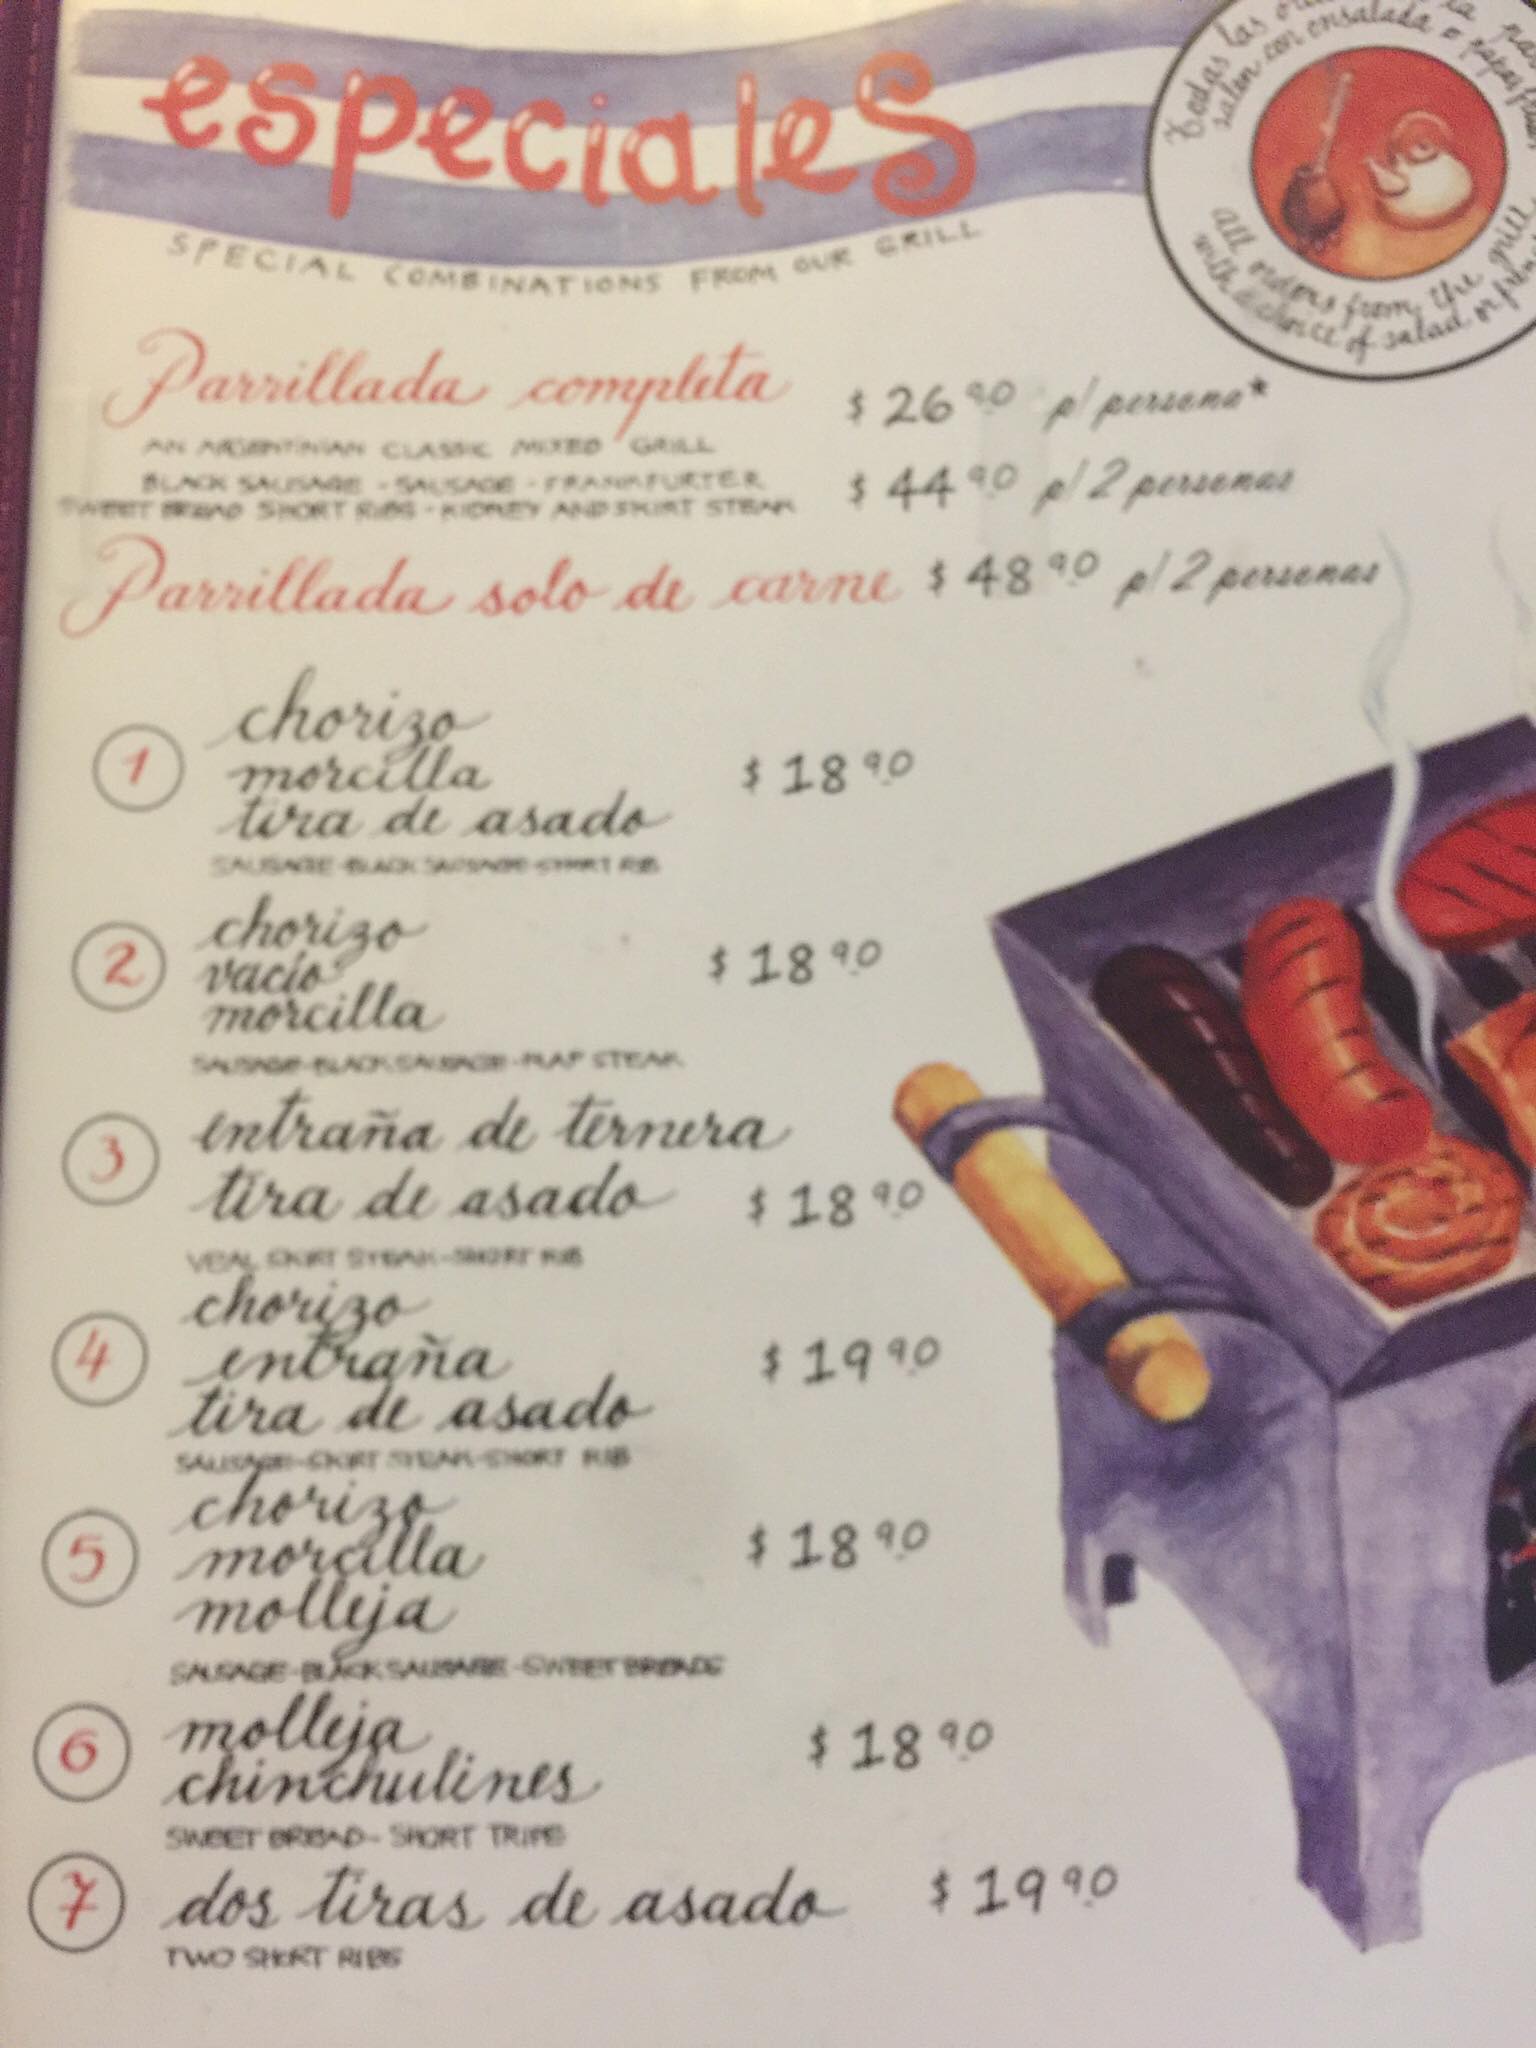 especiales
SPECIAL COMBINATIONS FROM OUR GRILL
Todas las
salen con ensalada o papas fritas
All orders from the grill
with a choice of salad or
Parrillada completa
$ 26 90 p/ persona*
AN ARGENTINIAN CLASSIC MIXED GRILL
BLACK SAUSAGE - SAUSAGE - FRANKFURTER
SWEET BREAD SHORT RIBS - KIDNEY AND SKIRT STEAK
$ 44 90 p/ 2 personas
Parrillada solo de carne $ 48 90 p/ 2 personas
1 chorizo
morcilla $ 18 90
tira de asado
SAUSAGE-BLACK SAUSAGE-SHORT RIB
2 chorizo
vacío $ 18 90
morcilla
SAUSAGE-BLACK SAUSAGE-FLAP STEAK
3 entraña de ternera
tira de asado $ 18 90
VEAL SKIRT STEAK-SHORT RIB
4 chorizo
entraña $ 19 90
tira de asado
SAUSAGE-SKIRT STEAK-SHORT RIB
5 chorizo
morcilla $ 18 90
molleja
SAUSAGE-BLACK SAUSAGE-SWEET BREADS
6 molleja $ 18 90
chinchulines
SWEET BREAD- SHORT TRIPE
7 dos tiras de asado $ 19 90
TWO SHORT RIBS